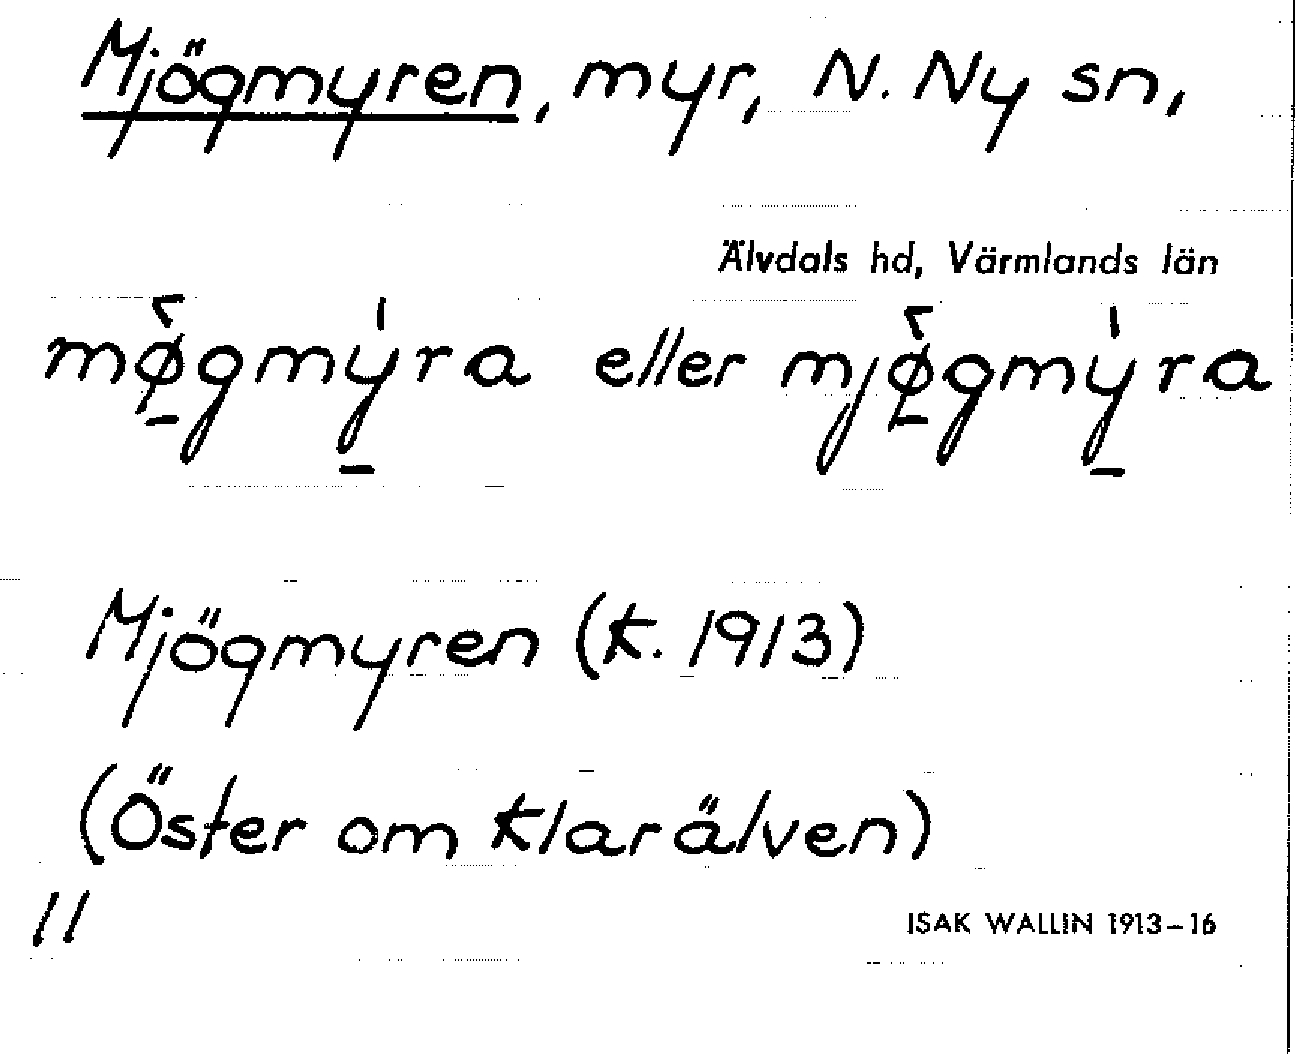 Mjögmyren, myr, N. Ny sn,
Älvdals hd, Värmlands län
mø̱̀gmý̱ra eller mjø̱̀gmý̱ra
Mjögmyren (K. 1913)
(Öster om Klarälven)
11
ISAK WALLIN 1913–16